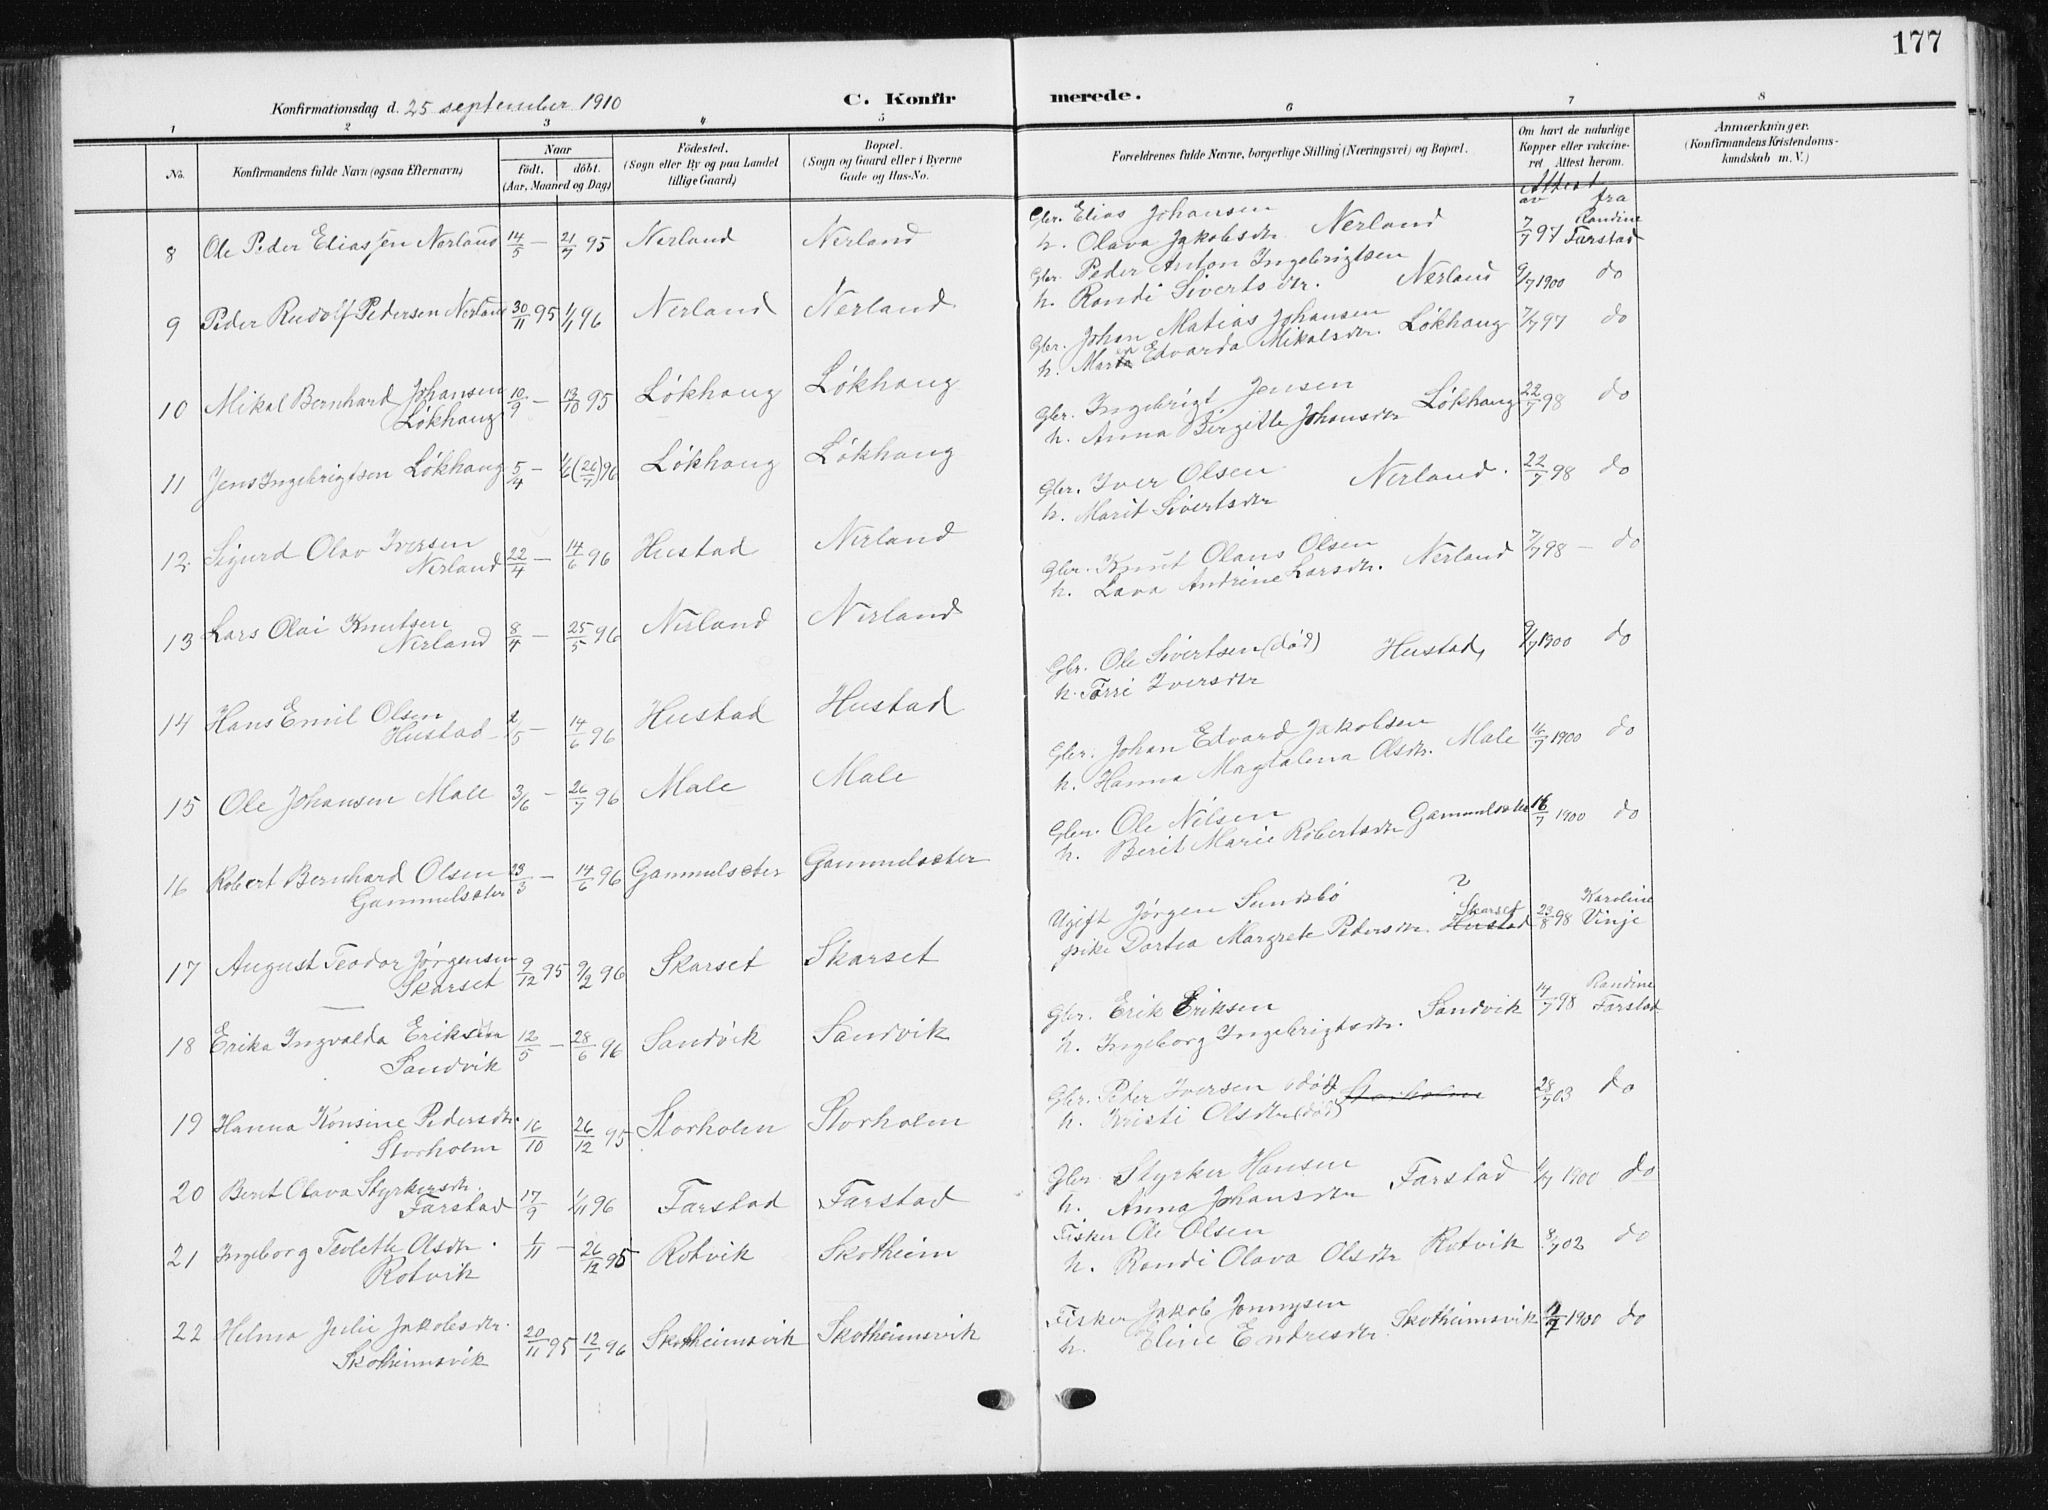 177
Konfirmationsdag d. 25 september 1910
C. Konfirmerede.
1 2 3 4 5 6 7 8
No.
Konfirmandens fulde Navn (ogsaa Efternavn)
Naar
födt. döbt.
(Aar, Maaned og Dag)
Födested.
(Sogn eller By og paa Landet
tillige Gaard)
Bopæl.
(Sogn og Gaard eller i Byerne
Gade og Hus-No.
Forældrenes fulde Navne, borgerlige Stilling (Næringsvei) og Bopæl.
Om havt de naturlige
Kopper eller vakcine-
ret. Attest herom.
Anmærkninger.
(Konfirmandens Kristendoms-
kundskab m. V.)
Attest
av fra
8 Ole Peder Eliassen Nerland 14/5 — 21/7 95 Nerland Nerland Gbr. Elias Johansen
h. Olava Jakobsdtr. Nerland 7/7 97 Randine Farstad
9 Peder Rudolf Pedersen Nerland 30/11 95 1/1 96 Nerland Nerland Gbr. Peder Anton Ingebrigtsen
h. Randi Sivertsdtr. Nerland 9/7 1900 do
10 Mikal Bernhard Johansen
Lökhaug 10/9 — 13/10 95 Lökhaug Lökhaug Gbr. Johan Matias Johansen
h. Edvarda Mikalsdtr. Lökhaug 7/7 97 do
11 Jens Ingebrigtsen Lökhaug 5/4 — 1/6 (26/7) 96 Lökhaug Lökhaug Gbr. Ingebrigt Jensen
h. Anna Birgitte Johansdtr Lökhaug 22/7 98 do
12. Sigurd Olav Iversen
Nerland 22/4 — 14/6 96 Hustad Nerland Gbr. Iver Olsen
h. Marit Sivertsdtr Nerland. 22/7 98 do
13 Lars Olai Knutsen
Nerland 8/4 — 25/5 96 Nerland Nerland Gbr. Knut Olaus Olsen
h. Lava Andrine Larsdtr. Nerland 7/7 98 — do
14 Hans Emil Olsen
Hustad 2/5 — 14/6 96 Hustad Hustad Gbr. Ole Sivertsen (död)
h. Törri Iversdtr Hustad, 9/7 1900 do
15 Ole Johansen Male 3/6 — 26/7 96 Male Male Gbr. Johan Edvard Jakobsen
h. Hanna Magdalena Olsdtr. Male 16/7 1900 do
16 Robert Bernhard Olsen
Gammelsæter 23/3 — 14/6 96 Gammelsæter Gammelsæter Gbr. Ole Nilsen
h. Berit Marie Robertsdtr Gammelsæter 16/7 1900 do
17 August Teodor Jørgensen
Skarset 9/12 95 9/2 96 Skarset Skarset Ugift Jørgen Sundsbö ?
pike Dortea Margrete Pedersdtr. Hustad Skarset 23/8 98 Karoline Vinje
18 Erika Ingvalda Eriksen
Sandvik 12/5 — 28/6 96 Sandvik Sandvik Gbr. Erik Eriksen
h. Ingeborg Ingebrigtsdtr. Sandvik 14/7 98 Randine Farstad
19 Hanna Konsine Pedersdtr
Storholm 16/10 26/12 95 Storholm Storholm Gbr. Peter Iversen (död)
h. Kristi Olsdtr (död) Storholm 28/7 03 do
20 Berit Olava Styrkersdtr.
Farstad 17/9 1/11 96 Farstad Farstad Gbr. Styrker Hansen
h. Anna Johansdtr Farstad 1900 do
21 Ingeborg Teolette Olsdtr.
Rotvik 1/11 — 26/12 95 Rotvik Skotheim Fisker Ole Olsen
h. Randi Olava Olsdtr Rotvik 8/7 02 do
22 Helma Julie Jakobsdtr.
Skotheimsvik 20/11 95 12/1 96 Skotheimsvik Skotheimsvik Fisker Jakob Jonnysen
h. Eline Endresdtr. Skotheimsvik 1900 do